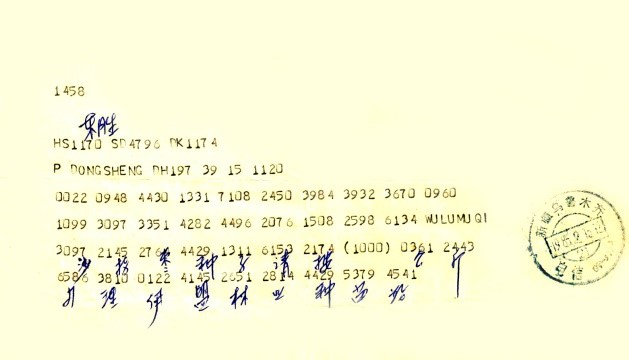 1458
东胜
HS1170 SD4796 DK1174
P DONGSHENG DH197 39 15 1120
0022 0948 4430 1331 7108 2450 3984 3932 3670 0960
1099 3097 3351 4282 4496 2076 1508 2598 6134 WULUMUQI
3097 2145 4429 1311 6153 2174 (1000) 0361 2443
沙拐枣种子请 公斤
6586 3810 0122 4145 2651 2814 4429 5379 4541
办理伊盟林业种苗站
新疆乌鲁木齐